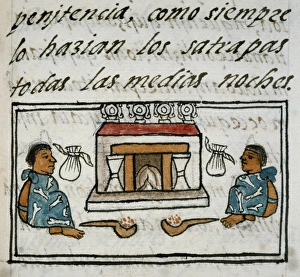 penjtencia, como siempre
lo hazian los satrapas
todas las medias noches.